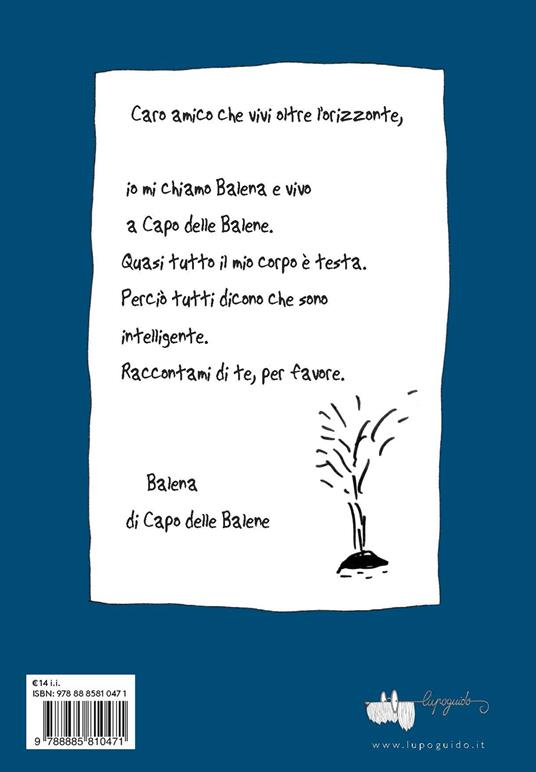 Caro amico che vivi oltre l'orizzonte,
io mi chiamo Balena e vivo
a Capo delle Balene.
Quasi tutto il mio corpo è testa.
Perciò tutti dicono che sono
intelligente.
Raccontami di te, per favore.
Balena
di Capo delle Balene
€14 i.i.
ISBN: 978 88 8581 047 1
9 788885 810471
lupoguido
www.lupoguido.it